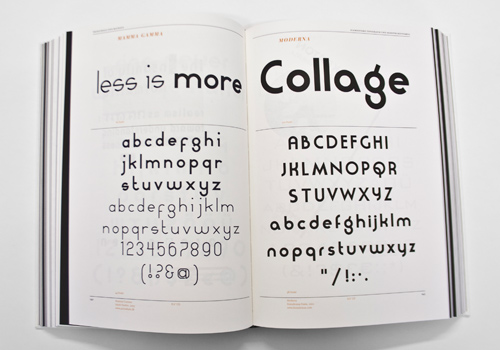 MAMMA GAMMA
less is more
abcdefghi
jklmnopqr
stuvwxyz
abcdefghijklm
nopqrstuvwxyz
1234567890
(!?&@)
MODERNA
Collage
ABCDEFGHI
JKLMNOPQR
STUVWXYZ
abcdefghijklm
nopqrstuvwxyz
"/!:·.